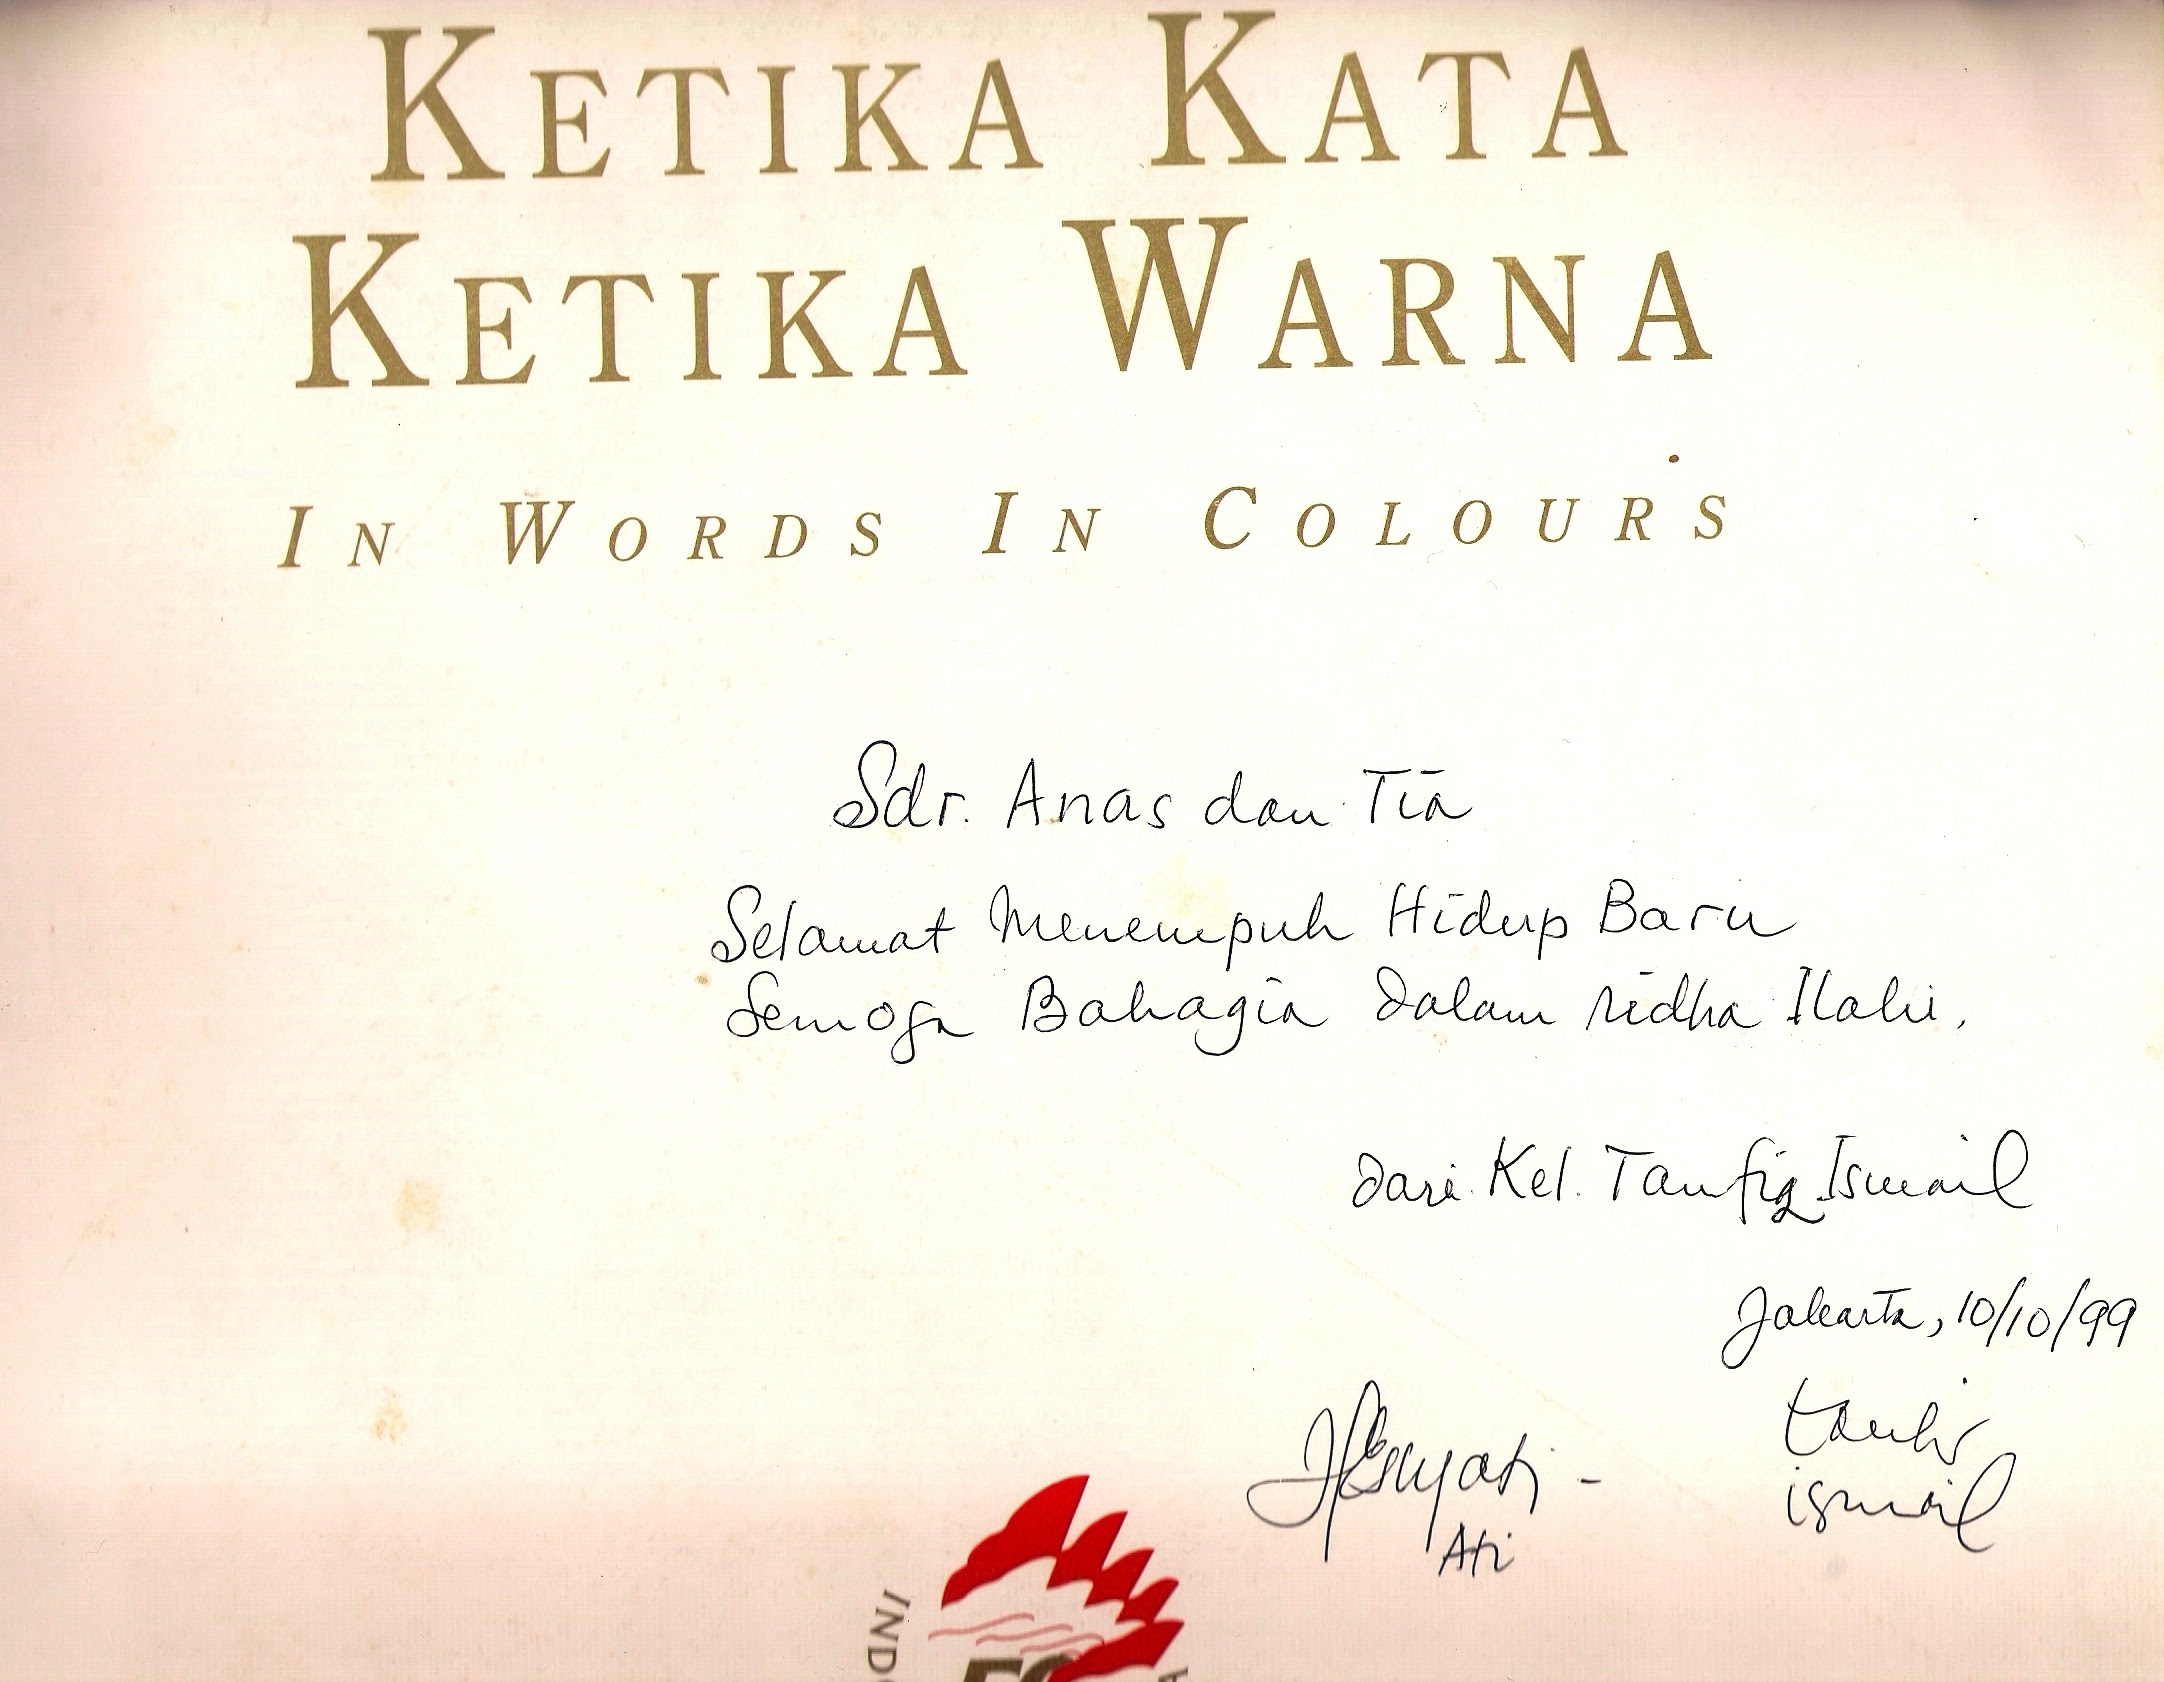 KETIKA KATA
KETIKA WARNA
IN WORDS IN COLOURS
Sdr. Anas dan Tia
Selamat Menempuh Hidup Baru
Semoga Bahagia dalam ridha Ilahi.
dari Kel. Taufiq Ismail
Jakarta, 10/10/99
Ati
ismail
IND
50